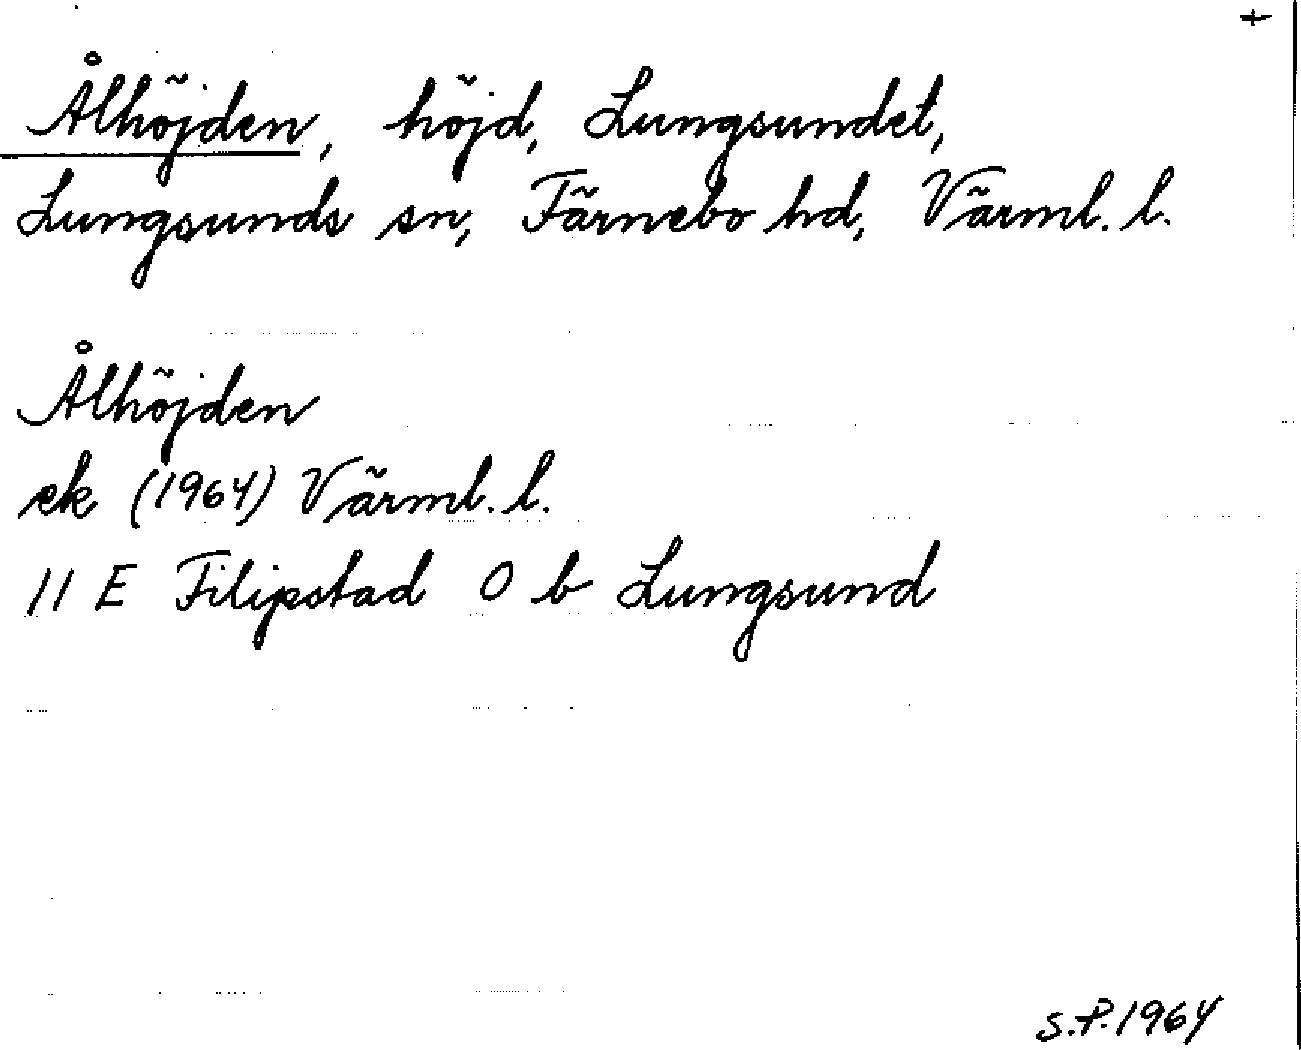 +
Ålhöjden, höjd, Lungsundet,
Lungsunds sn, Färnebo hd, Värml. l.
Ålhöjden
ek (1964) Värml. l.
11 E Filipstad O b Lungsund
S.P. 1964